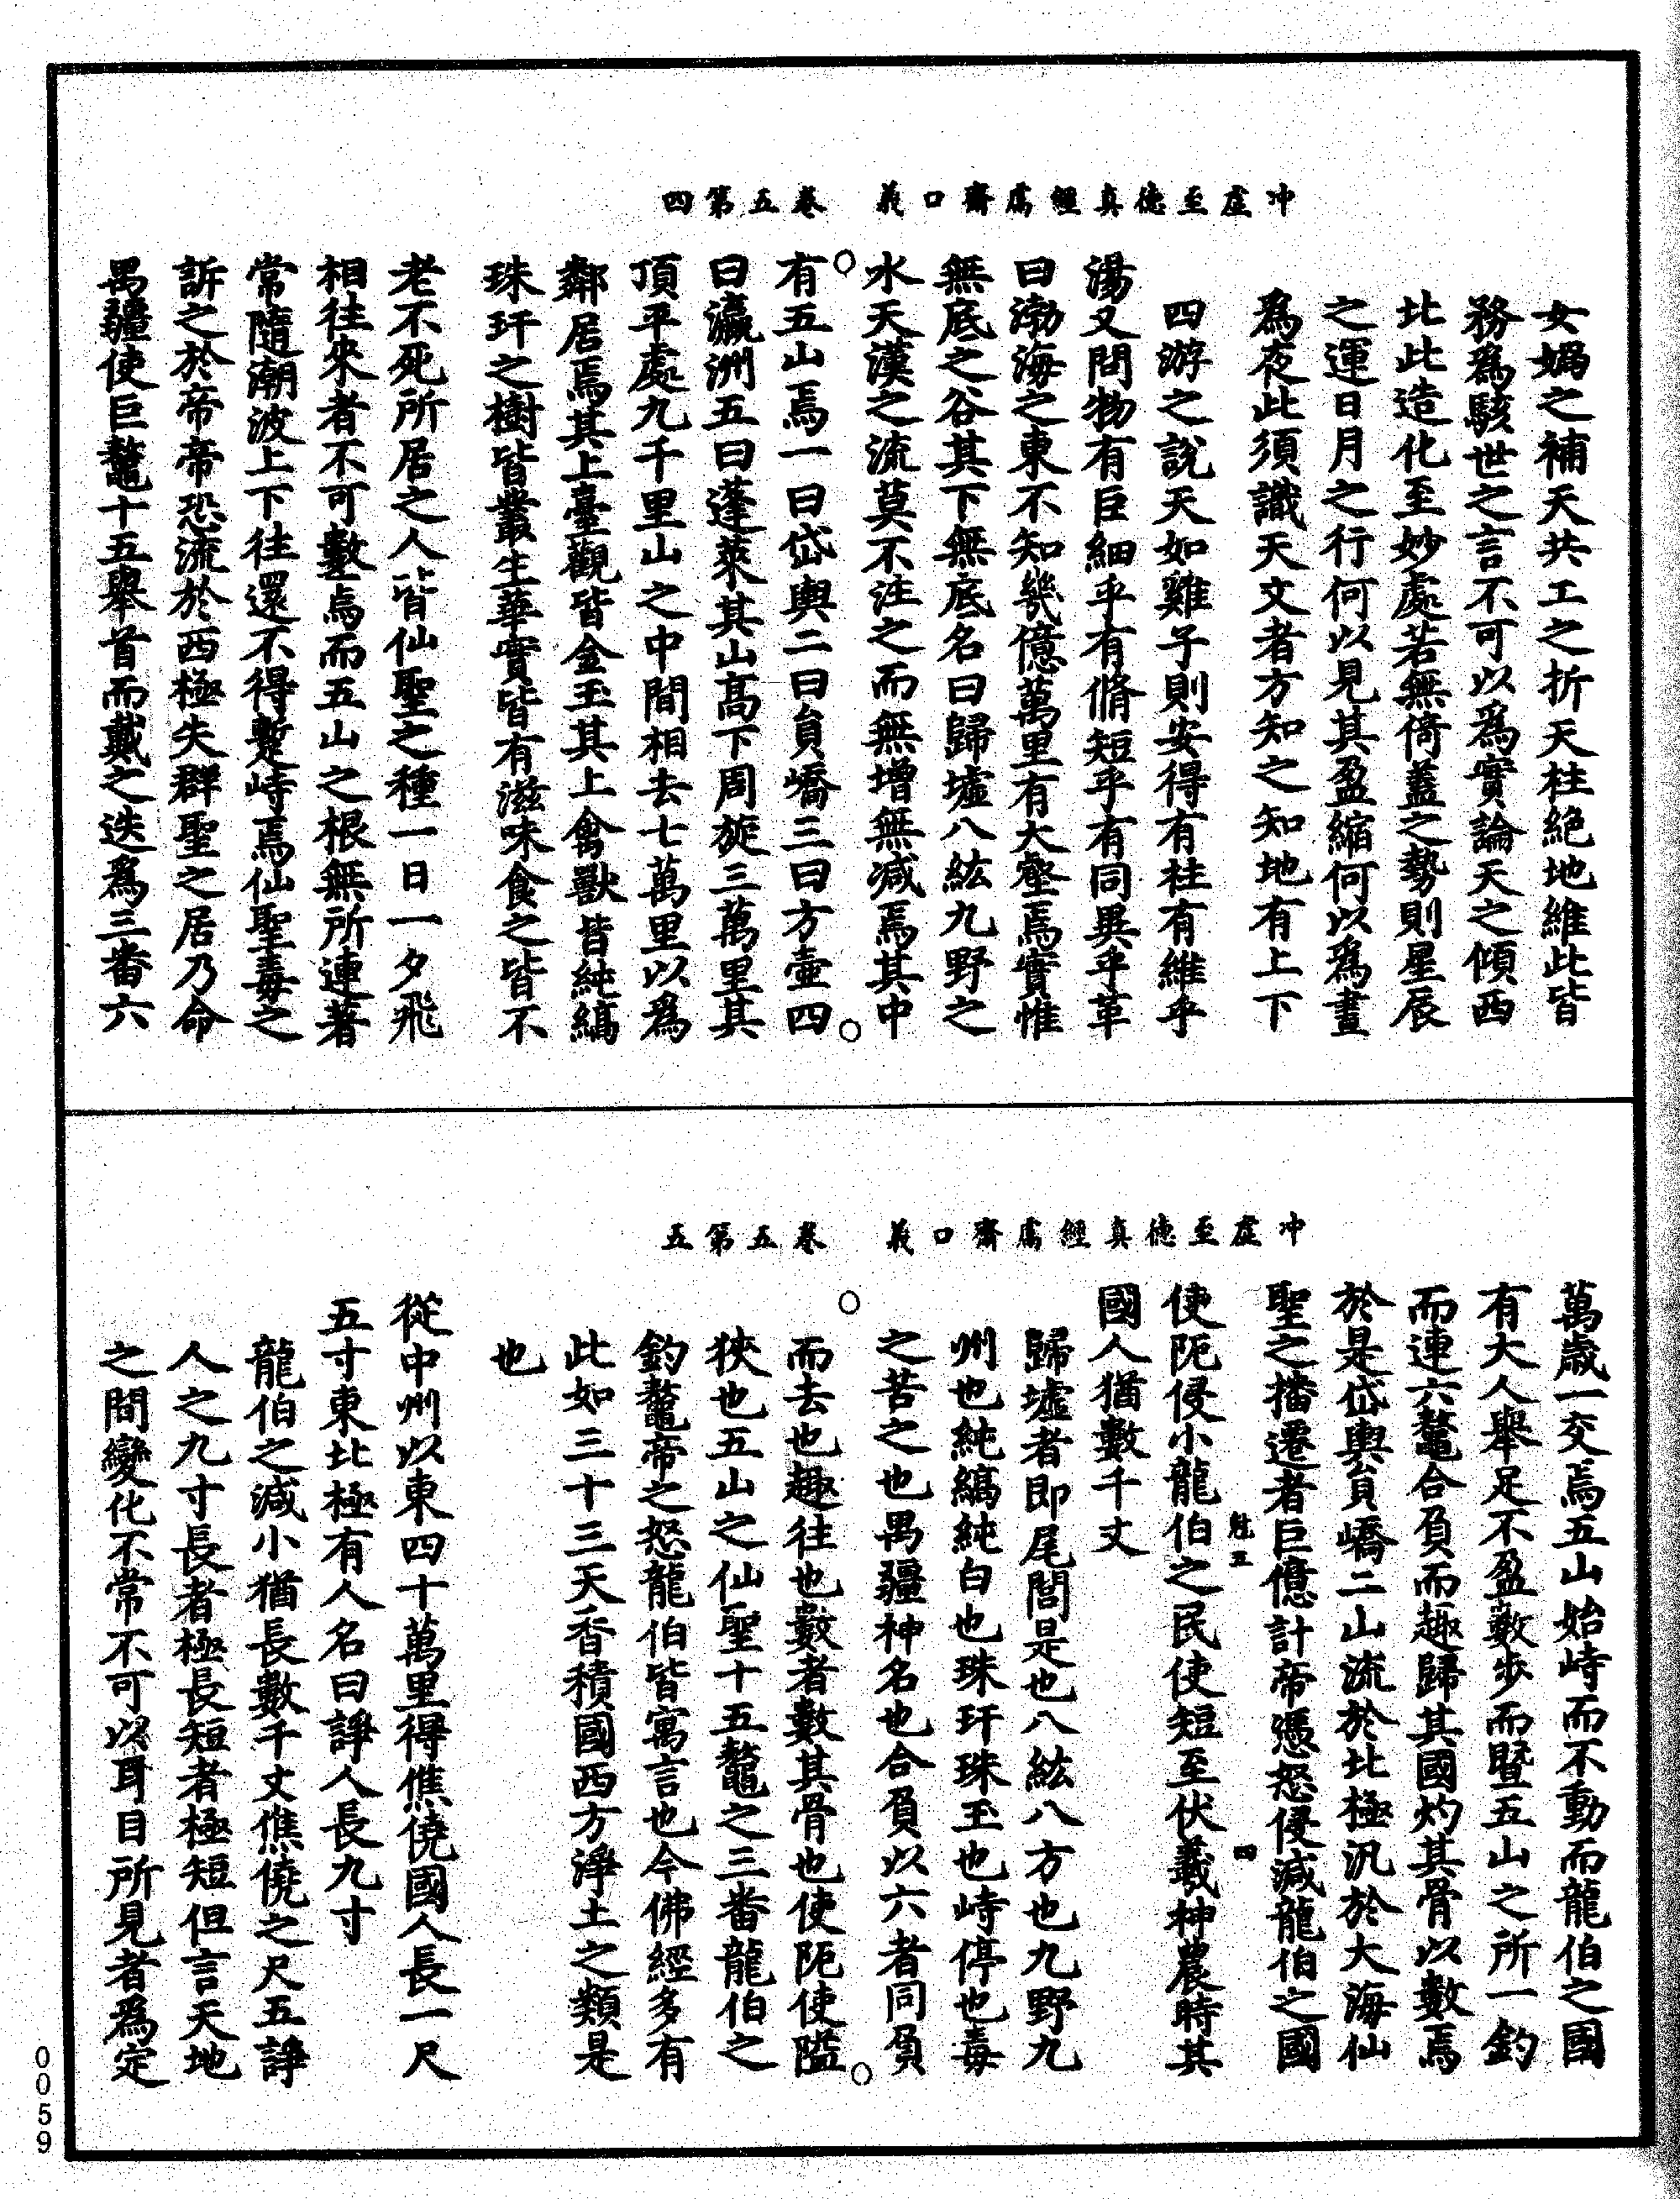 冲虛至德真經鬳齋口義　卷五第四
女媧之補天共工之折天柱絶地維此皆
務爲駭世之言不可以爲實論天之傾西
北此造化至妙處若無倚蓋之勢則星辰
之運日月之行何以見其盈縮何以爲晝
爲夜此須識天文者方知之知地有上下
四游之說天如雞子則安得有柱有維乎
湯又問物有巨細乎有脩短乎有同異乎革
曰渤海之東不知幾億萬里有大壑焉實惟
無底之谷其下無底名曰歸墟八紘九野之
水天漢之流莫不注之而無增無减焉其中
有五山焉一曰岱輿二曰員嶠三曰方壺四
曰瀛洲五曰蓬萊其山高下周旋三萬里其
頂平處九千里山之中間相去七萬里以爲
鄰居焉其上臺觀皆金玉其上禽獸皆純縞
珠玕之樹皆叢生華實皆有滋味食之皆不
老不死所居之人皆仙聖之種一日一夕飛
相往來者不可數焉而五山之根無所連著
常隨潮波上下往還不得蹔峙焉仙聖毒之
訴之於帝帝恐流於西極失群聖之居乃命
禺彊使巨鼇十五舉首而戴之迭爲三番六
冲虛至德真經鬳齋口義　卷五第五
萬歲一交焉五山始峙而不動而龍伯之國
有大人舉足不盈數步而暨五山之所一釣
而連六鼇合負而趣歸其國灼其骨以數焉
於是岱輿員嶠二山流於北極沉於大海仙
聖之播遷者巨億計帝憑怒侵减龍伯之國
魅五　四
使阨侵小龍伯之民使短至伏羲神農時其
國人猶數千丈
歸墟者即尾閭是也八紘八方也九野九
州也純縞純白也珠玕珠玉也峙停也毒
之苦之也禺彊神名也合負以六者同負
而去也趣往也數者數其骨也使阨使隘
狹也五山之仙聖十五鼇之三番龍伯之
釣鼇帝之怒龍伯皆寓言也今佛經多有
此如三十三天香積國西方淨土之類是
也
從中州以東四十萬里得僬僥國人長一尺
五寸東北極有人名曰諍人長九寸
龍伯之减小猶長數千丈僬僥之尺五諍
人之九寸長者極長短者極短但言天地
之間變化不常不可以耳目所見者爲定
0059